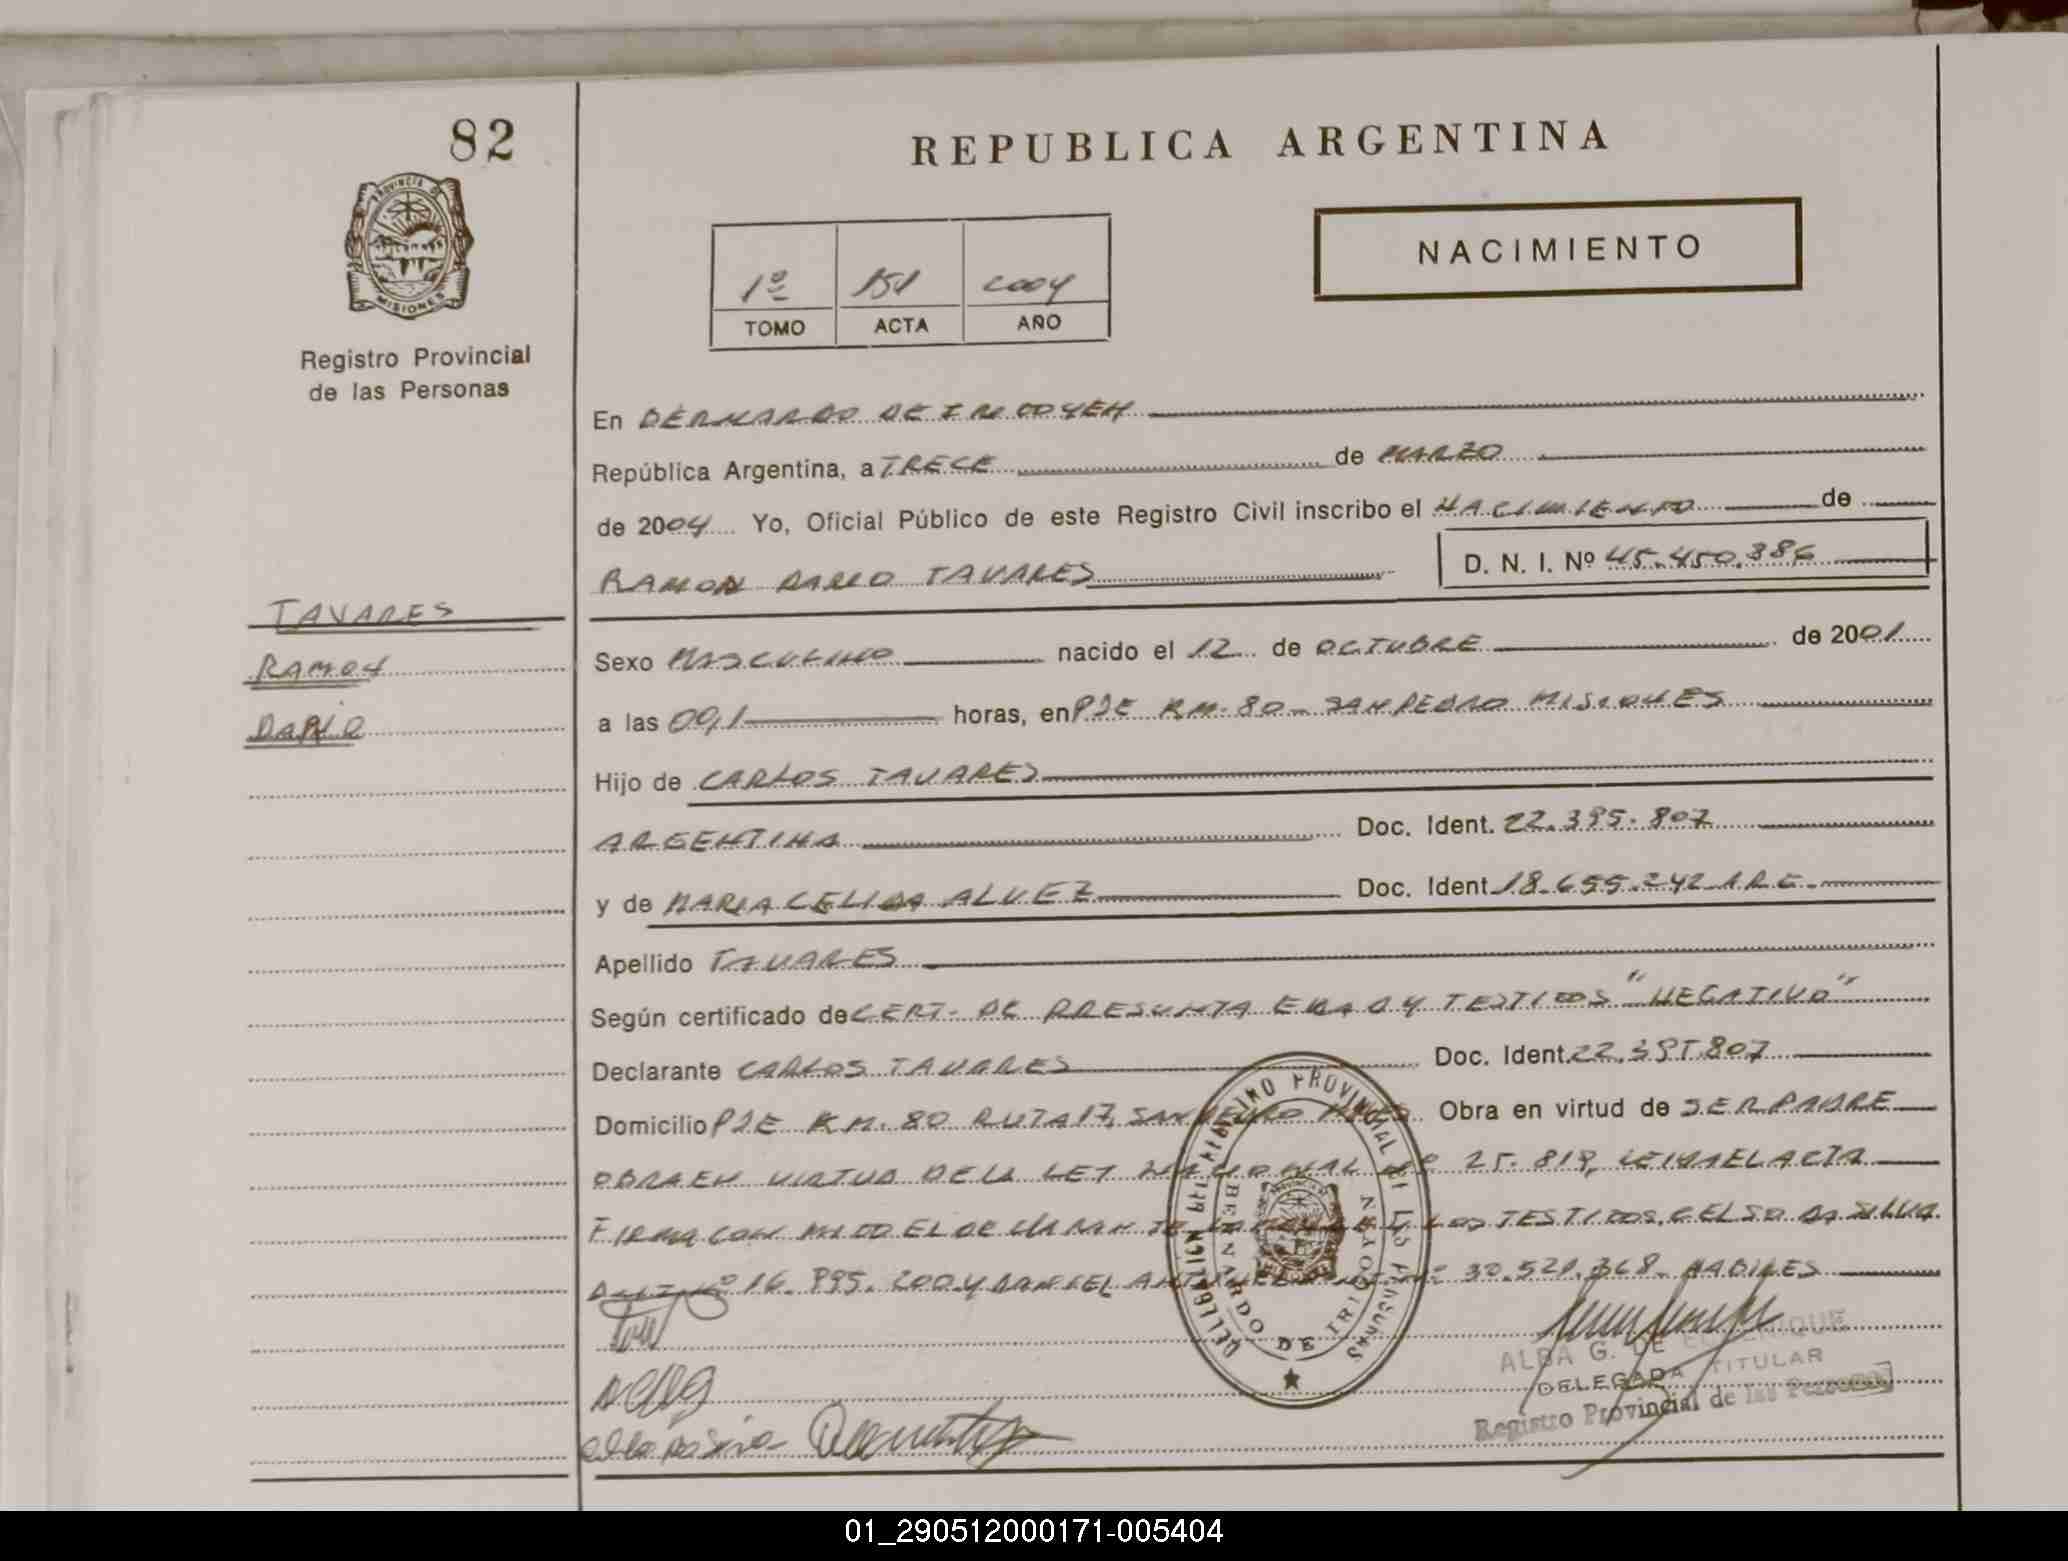 82
REPUBLICA ARGENTINA
PROVINCIA DE
MISIONES
Registro Provincial
de las Personas
NACIMIENTO
1º 151 2004
TOMO ACTA AÑO
En BERNARDO DE IRIGOYEN
República Argentina, a TRECE de MARZO
de 2004 Yo, Oficial Público de este Registro Civil inscribo el NACIMIENTO de
RAMON DARIO TAVARES D. N. I. Nº 45.450.386
TAVARES
RAMON
DARIO
Sexo MASCULINO nacido el 12 de OCTUBRE de 2001
a las 09,1 horas, en PJE KM. 80 - SAN PEDRO MISIONES
Hijo de CARLOS TAVARES
ARGENTINA Doc. Ident. 22.395.807
y de MARIA CELIDA ALVEZ Doc. Ident. 18.655.242 ARG.
Apellido TAVARES
Según certificado de CERT. DE PRESUNTA EDAD Y TESTIGOS "NEGATIVO"
Declarante CARLOS TAVARES Doc. Ident. 22.395.807
Domicilio PJE KM. 80 RUTA 17, SAN PEDRO MNES Obra en virtud de SER PADRE
OBRA EN VIRTUD DE LA LEY NACIONAL Nº 25.819, LEIDA EL ACTA
FIRMA CONMIGO EL DECLARANTE Y LOS TESTIGOS, CELSO DA SILVA
D.N.I. Nº 16.995.200 Y DANIEL Nº 30.521.368 - HABILES
DELEGACION DEL REGISTRO PROVINCIAL DE LAS PERSONAS
BERNARDO DE IRIGOYEN
ALBA G. DE
DELEGADA TITULAR
Registro Provincial de las Personas
01_290512000171-005404